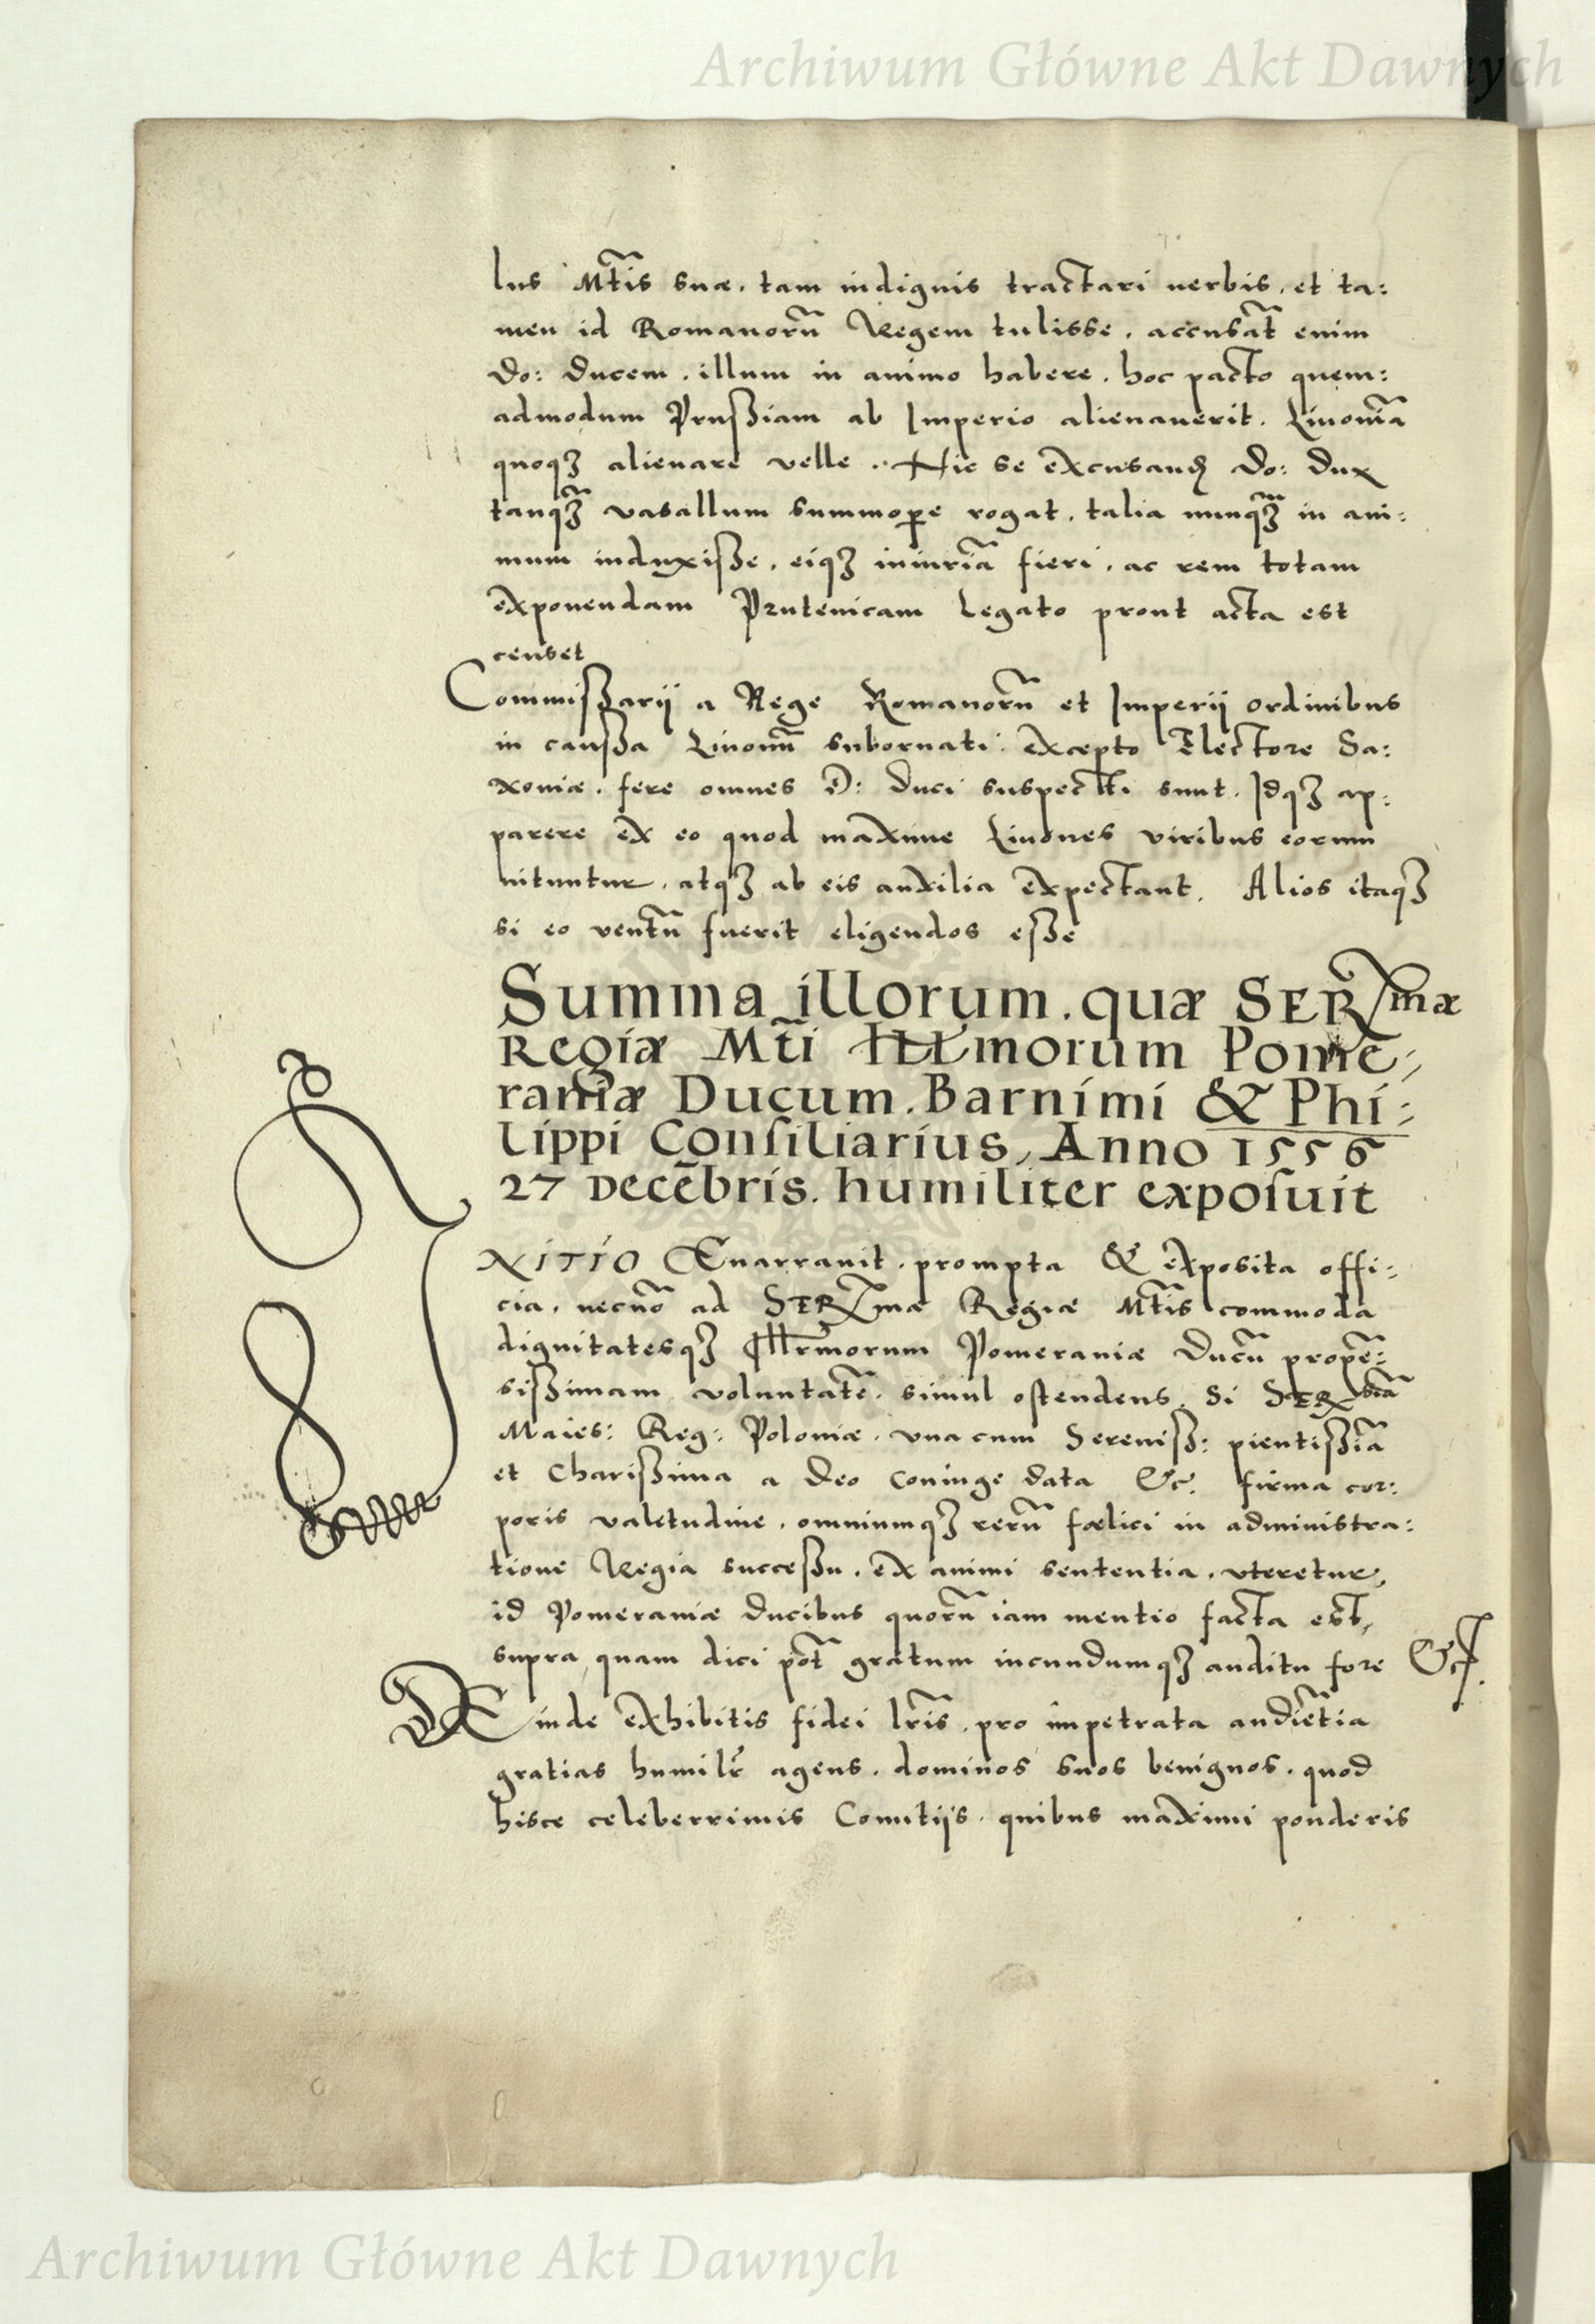 Archiwum Główne Akt Dawnych
lus Mtis suæ, tam indignis tractari uerbis, et ta:
men id Romanorũ Regem tulisse, accusãt enim
Do: Ducem, illum in animo habere, hoc pacto quem:
admodum Prußiam ab Imperio alienauerit, Liuoniã
quoqȝ alienare velle. Hic se excusandũ Do: Dux
tanqȝ̃ vasallum summopere rogat, talia nunqȝ̃ in ani:
mum induxiße, eiqȝ iniuriã fieri, ac rem totam
exponendam Prutenicam Legato prout acta est
censet
Commißarij a Rege Romanorũ et Imperij ordinibus
in caußa Liuonũ subornati: excepto Electore Sa:
xoniæ, fere omnes D: Duci suspecti sunt. Idqȝ ap:
parere ex eo quod maxime Liuones viribus eorum
nituntur, atqȝ ab eis auxilia expectant. Alios itaqȝ
si eo ventũ fuerit eligendos eße
Summa illorum, quæ SERmæ
Regiæ Mti Illmorum Pome:
raniæ Ducum, Barnimi & Phi:
lippi Consiliarius, Anno 1556
27 Decẽbris, humiliter exposuit
INITIO Enarrauit, prompta & exposita offi:
cia, necnõ ad SERmæ Regiæ Mtis commoda
dignitatesqȝ Illrmorum Pomeraniæ Ducũ propẽ:
sißimam voluntatẽ, simul ostendens, Si SER
Maies: Reg: Poloniæ, vna cum Sereniß: pientißiã
et Charißima a Deo Coniuge data &c. firma cor:
poris valetudine, omniumqȝ rerũ fœlici in administra:
tione Regia succeßu, ex animi sententia, vteretur,
id Pomeraniæ Ducibus quorũ iam mentio facta est,
supra quam dici põt gratum iucundumqȝ auditu fore &c.
DEinde exhibitis fidei lr̃is, pro impetrata audiẽtia
gratias humilr̃ agens, dominos suos benignos, quod
hisce celeberrimis Comitijs, quibus maximi ponderis
Archiwum Główne Akt Dawnych